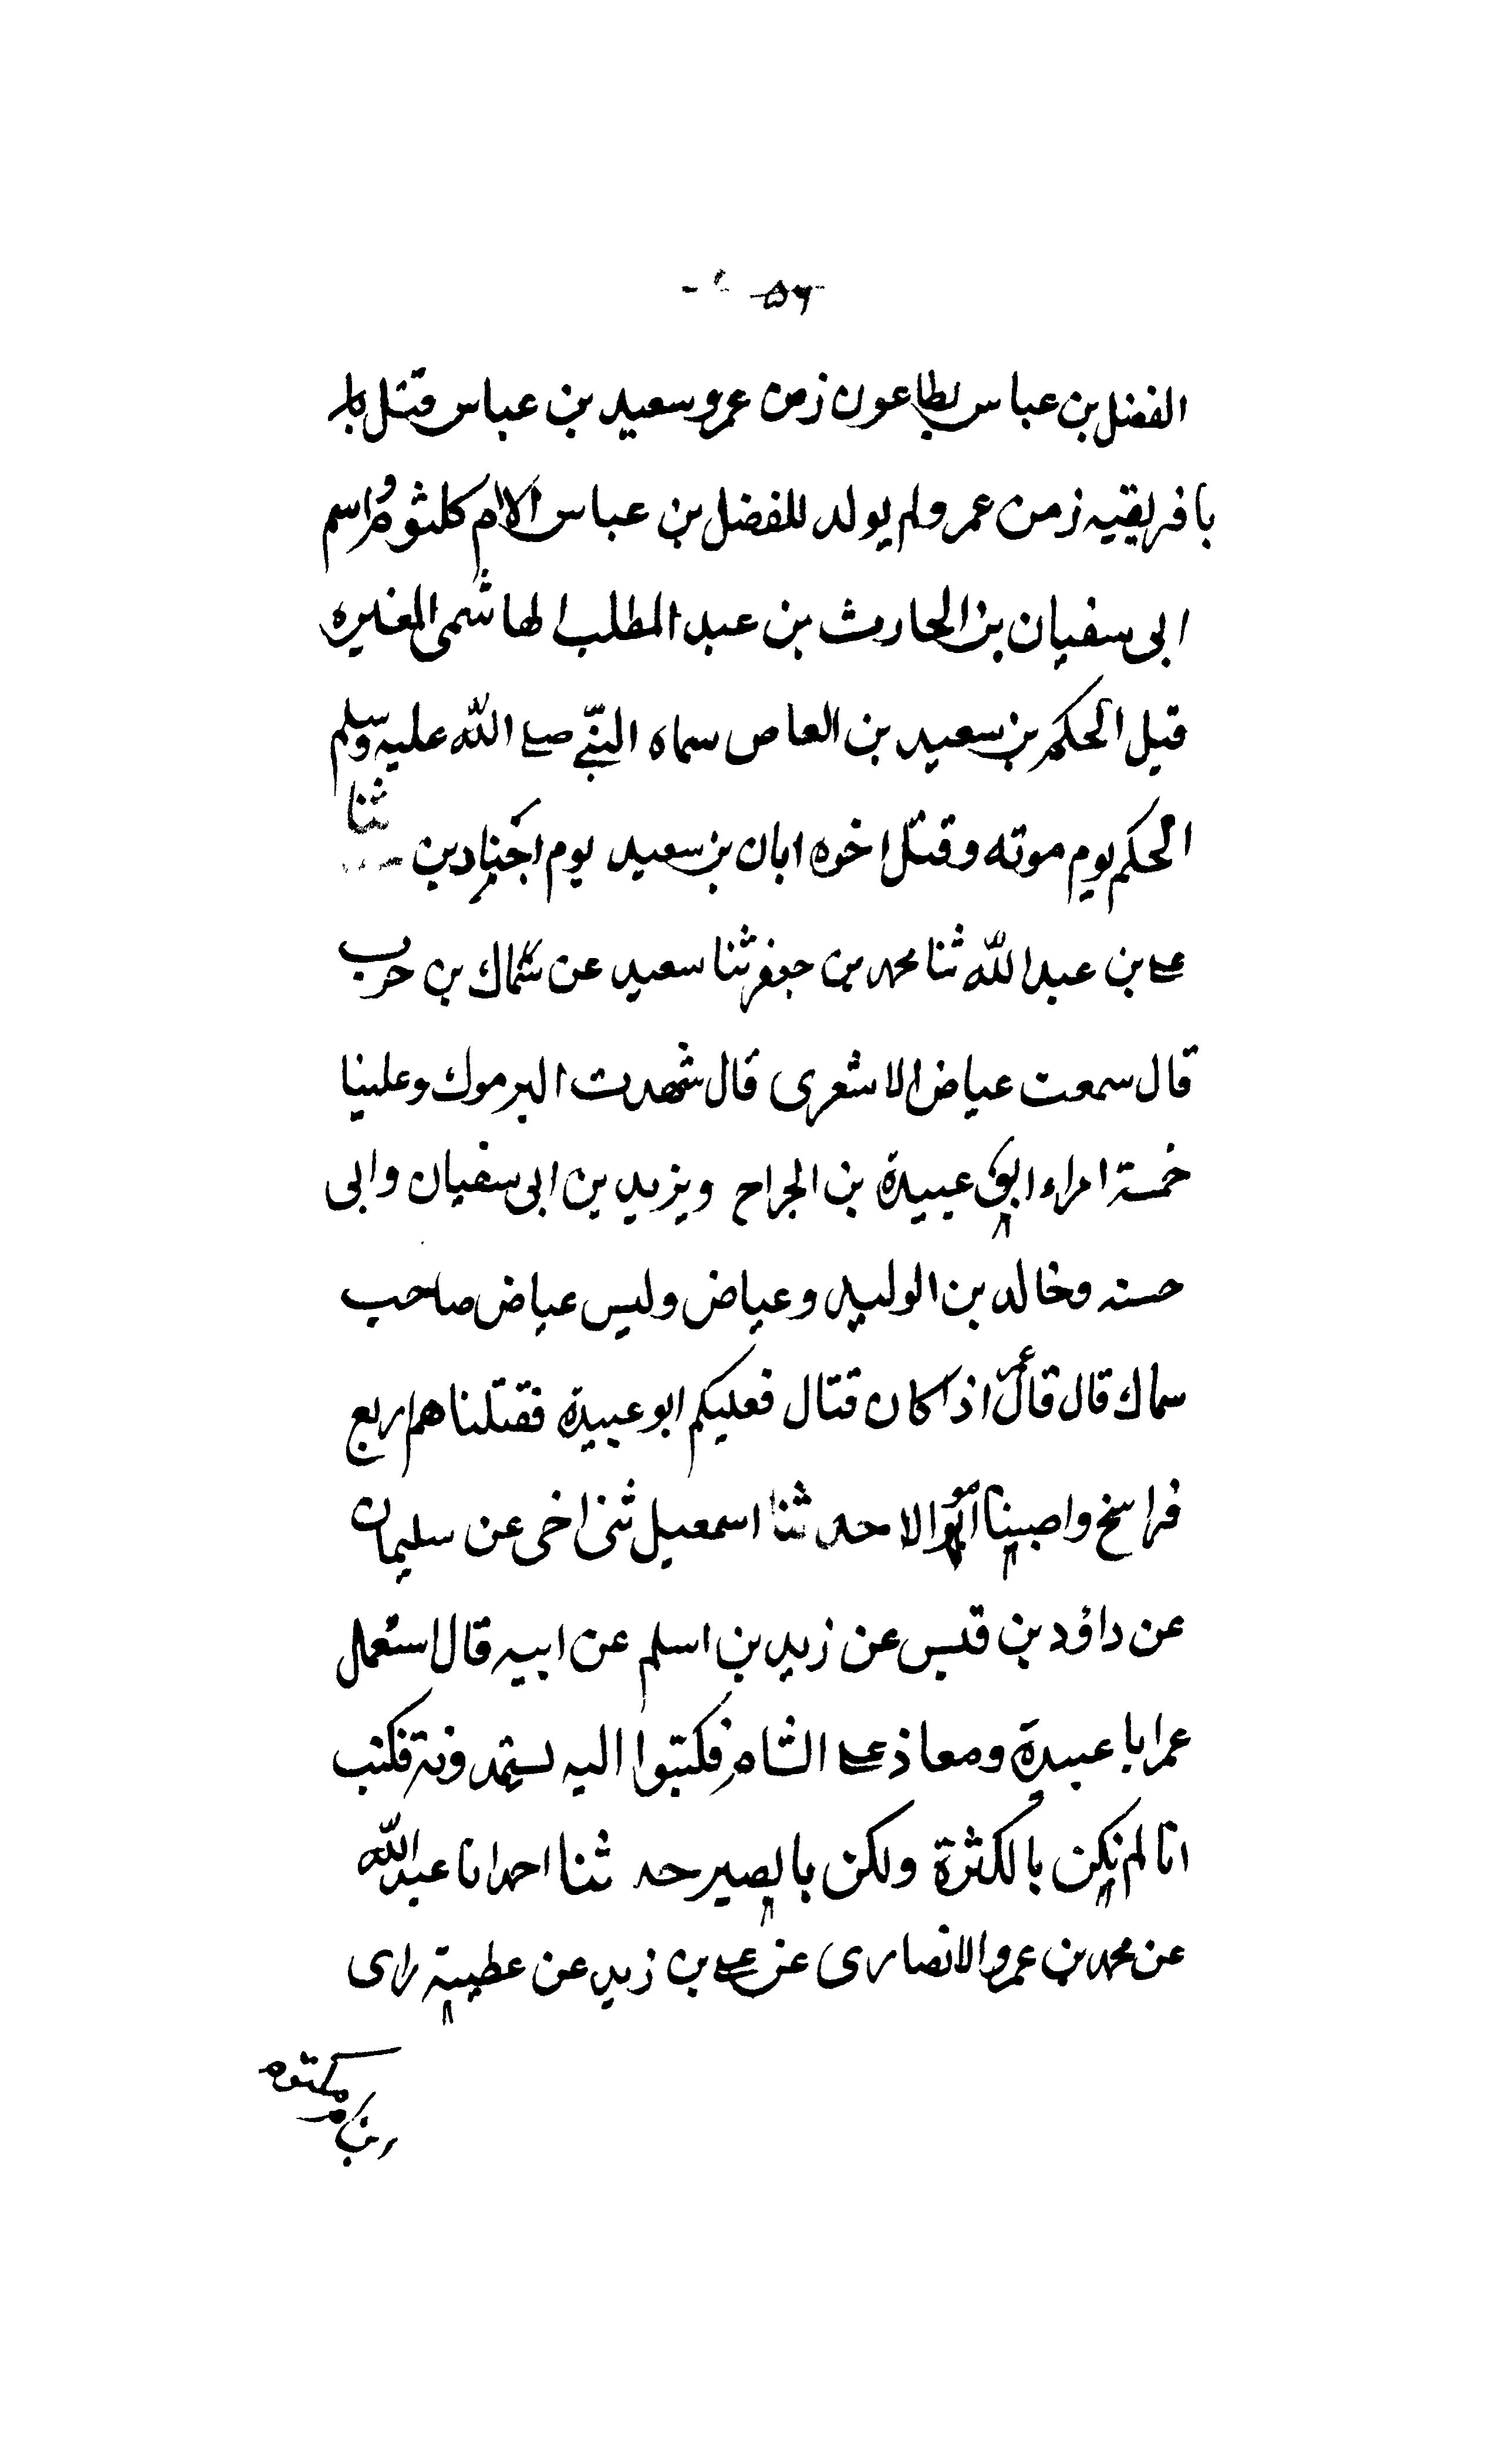 ٥٦
الفضل بن عباس بطاعون زمن عمر وسعيد بن عباس قتل
بافريقيه زمن عمر ولم يولد للفضل بن عباس الا ام كلثوم واسم
ابى سفيان بن الحارث بن عبد المطلب الهاشمى المغيره
قيل الحكم بن سعيد بن العاص سماه النبى صلے الله عليه وسلم
الحكم يوم موته وقتل اخوه ابان بن سعيد يوم اجنادين ثنا
علے بن عبد الله ثنا محمد بن جعفر ثنا سعيد عن سماك بن حرب
قال سمعت عياض الاشعرى قال شهدت اليرموك وعلينا
خمسة امراء ابو عبيدة بن الجراح ويزيد بن ابى سفيان وابى
حسنه وخالد بن الوليد وعياض وليس عياض صاحب
سماك قال قال عمر اذا كان قتال فعليكم ابو عبيدة فقتلناهم اربع
فراسخ واصبنا اموالا حد ثنا اسمعيل ثنى اخى عن سليمان
عن داؤد بن قيس عن زيد بن اسلم عن ابيه قال استعمل
عمر ابا عبيدة ومعاذ علے الشام فكتبوا اليه يستمدونه فكتب
انا لم نكن بالكثرة ولكن بالصبر حد ثنا احمد انا عبد الله
عن محمد بن عمرو الانصارى عن علے بن زيد عن عطية راى